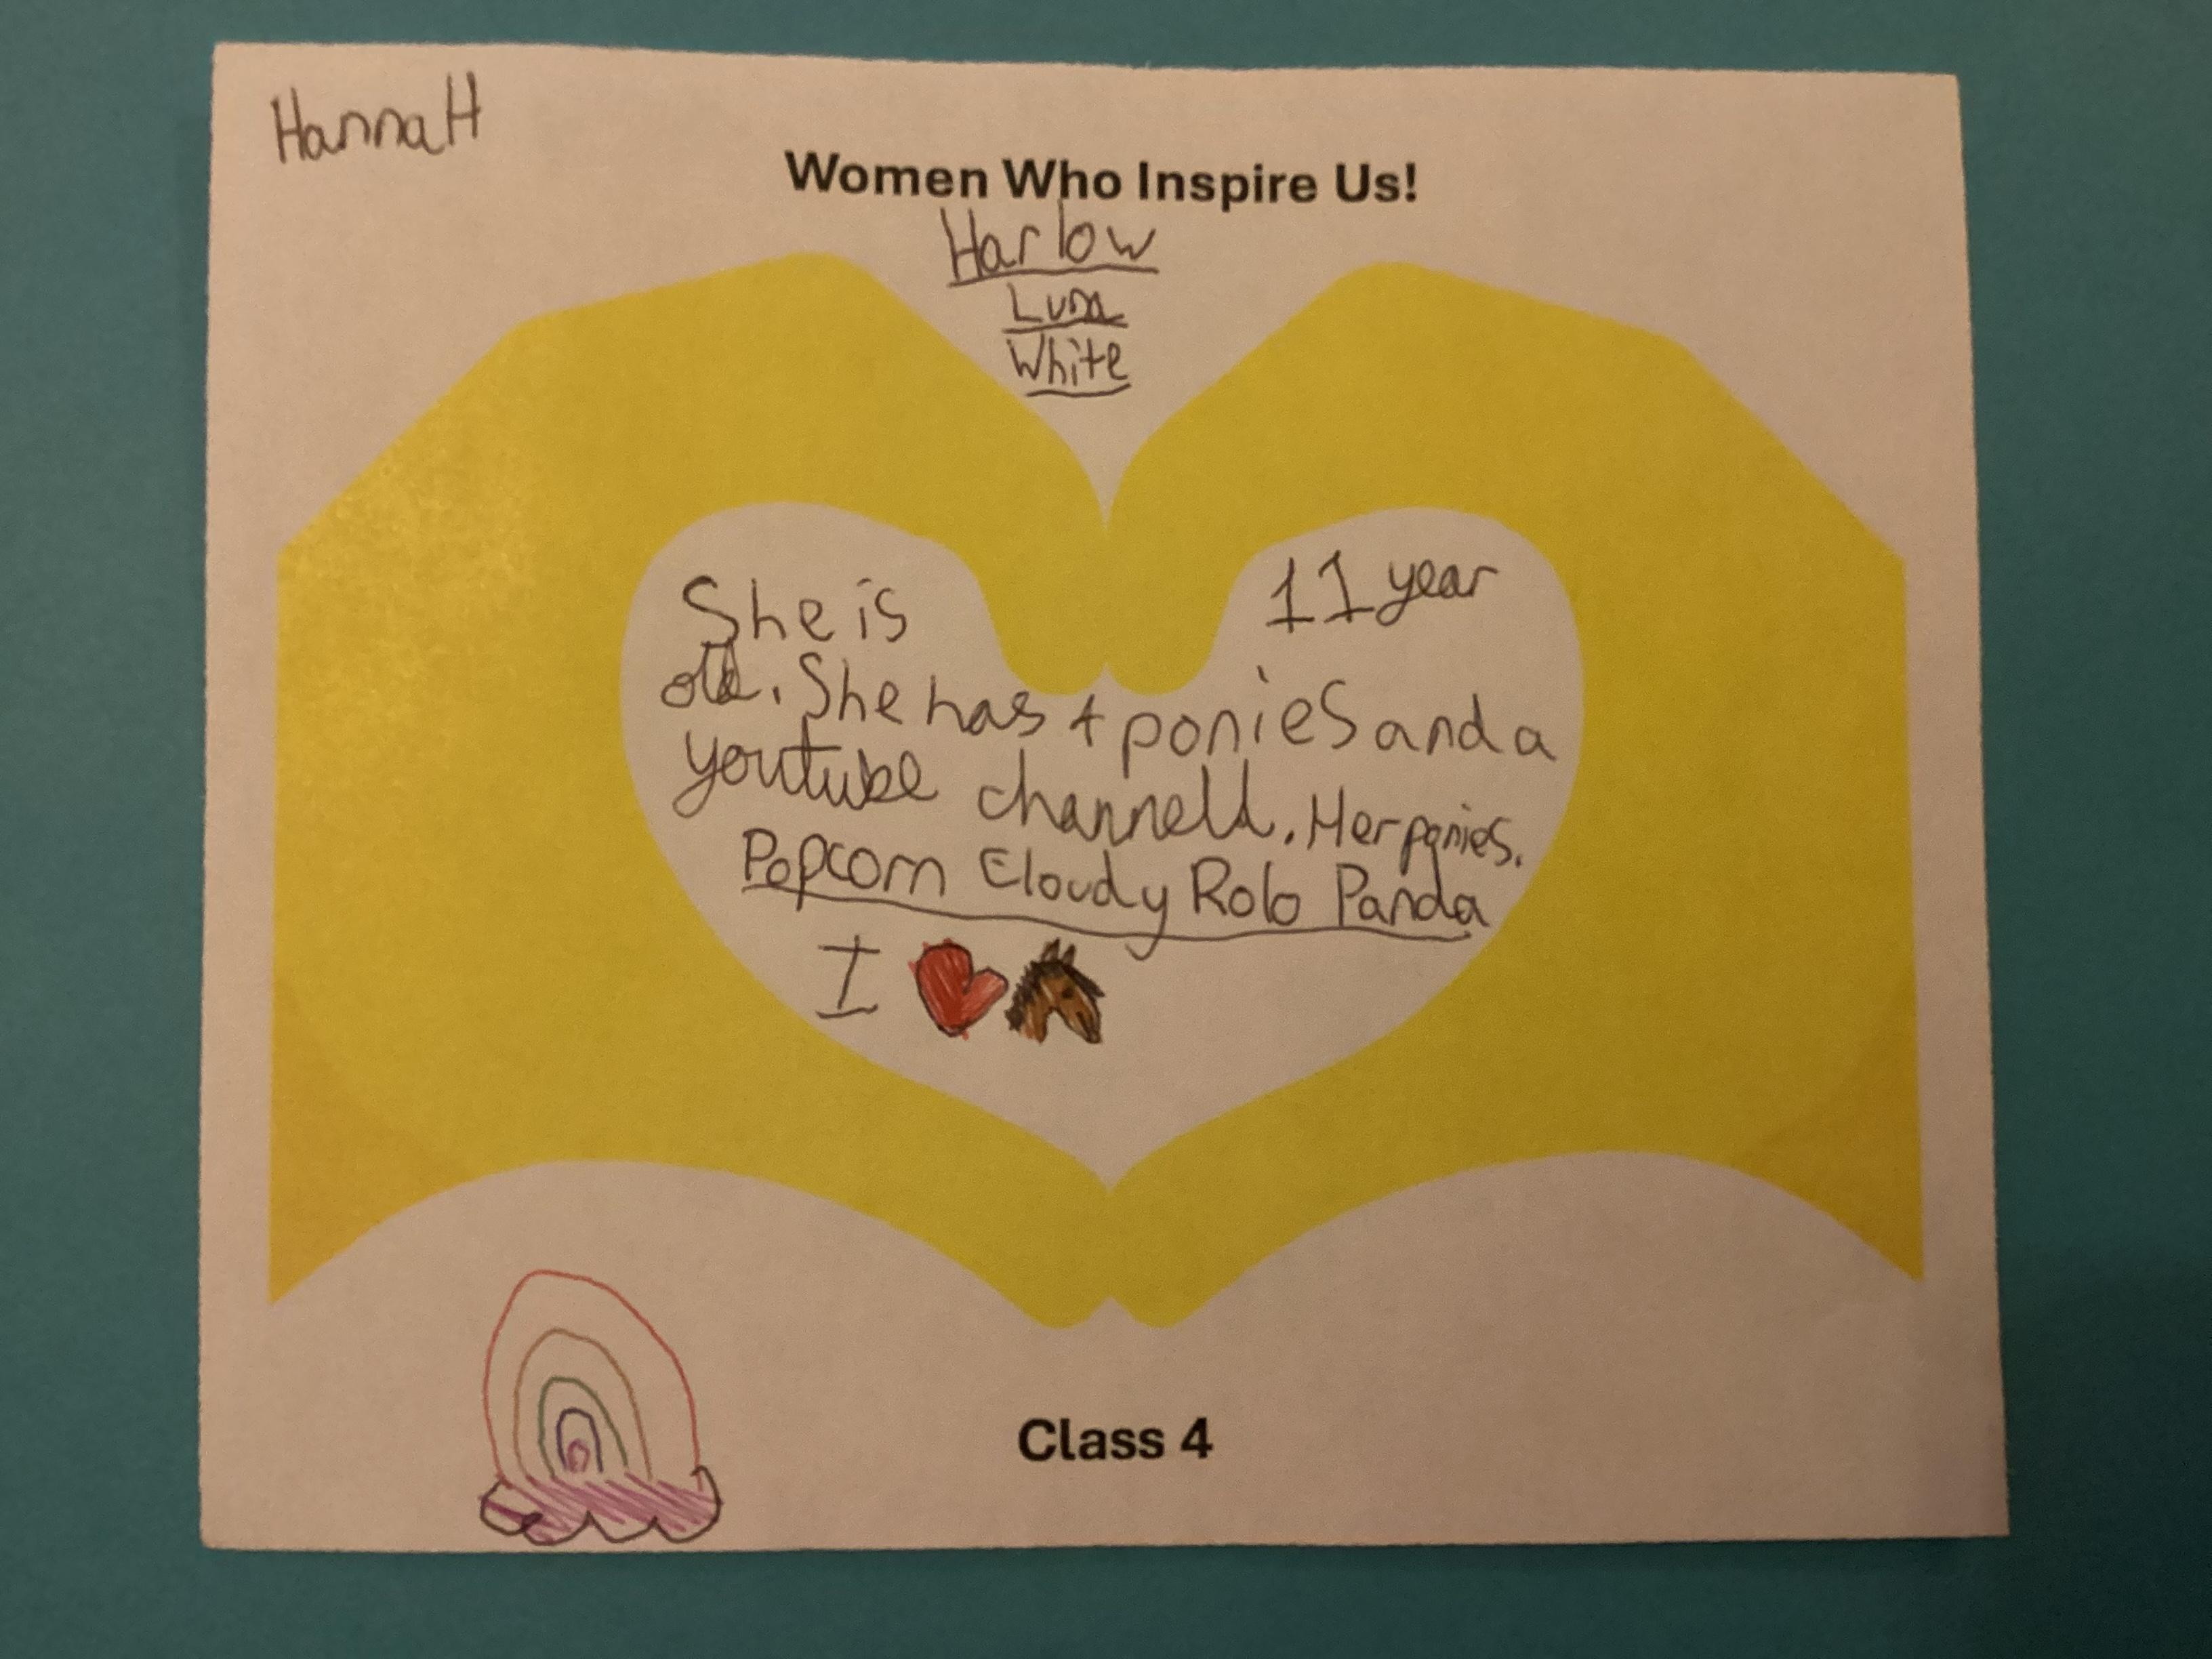 HannaH
Women Who Inspire Us!
Harlow
Luna
White
She is 11 year
old. She has 4 ponies and a
youtube channell. Her ponies.
Popcorn Cloudy Rolo Panda
I
Class 4